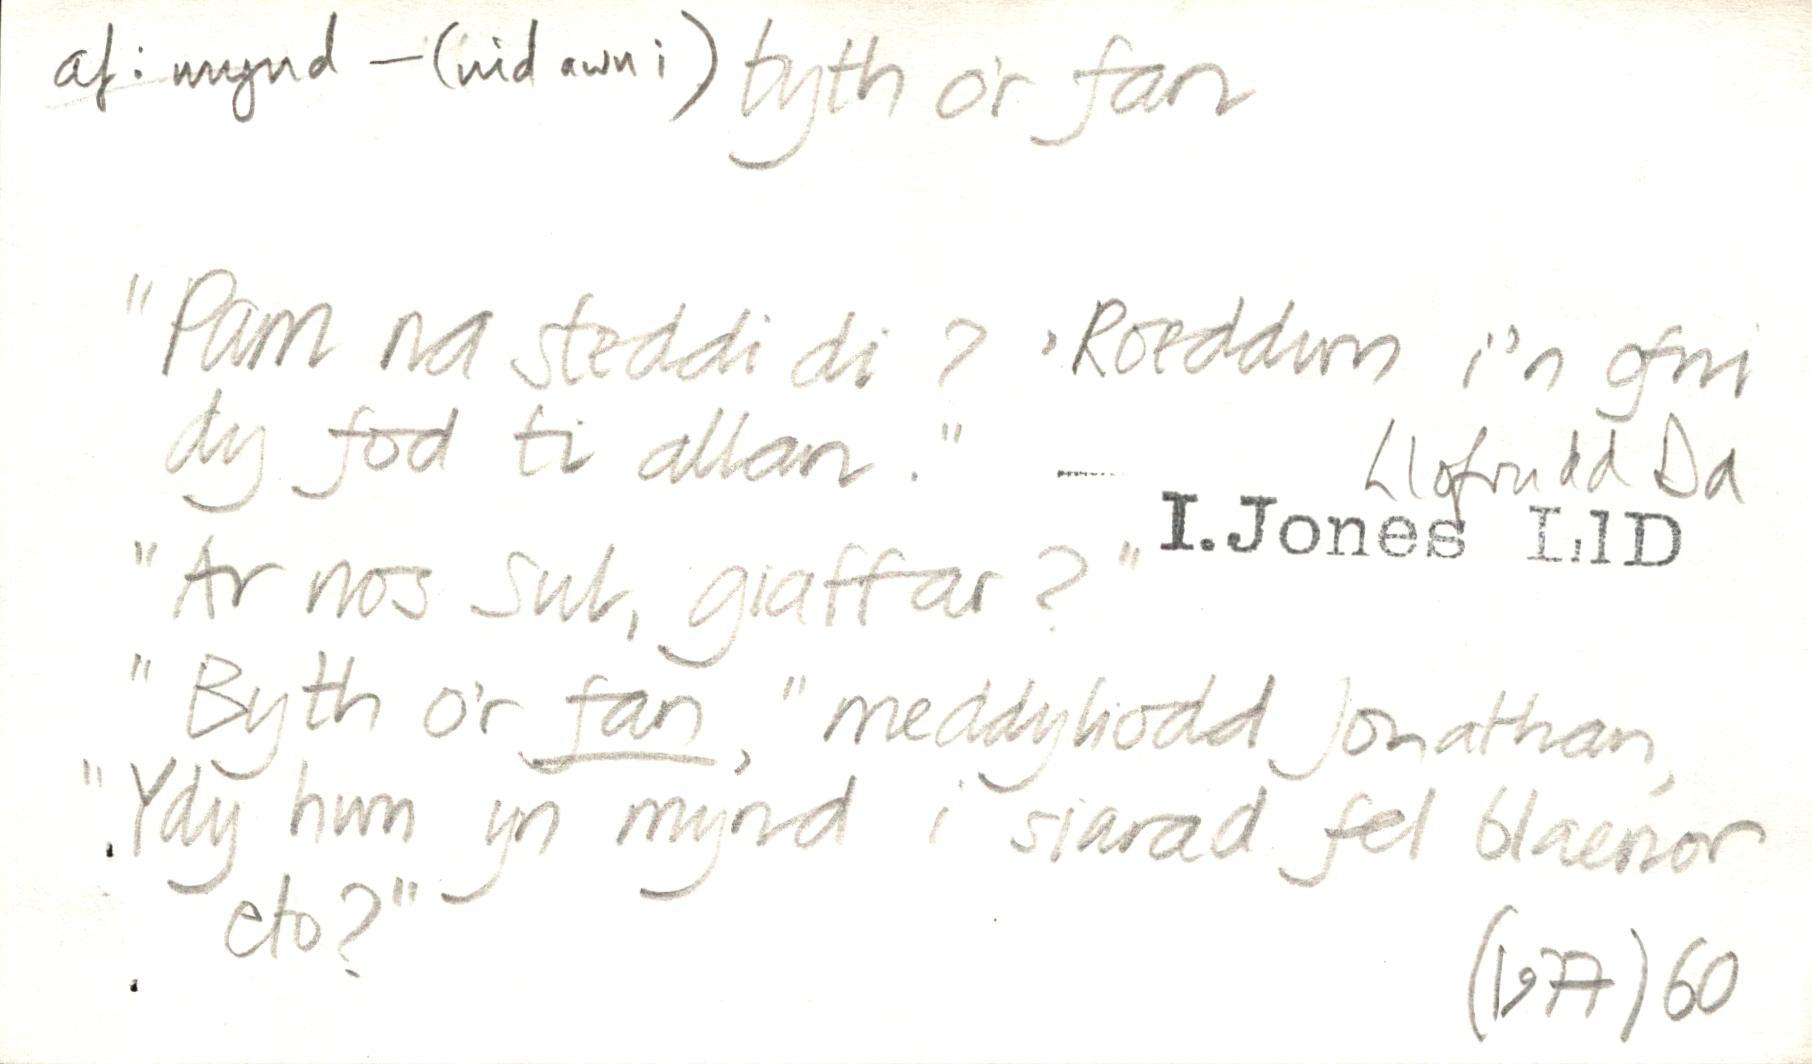 af: mynd – (nid awn i) byth o'r fan
"Pam na steddi di? Roeddwn i'n ofni
dy fod ti allan." —
Llofrudd Da
I.Jones LlD
"Ar nos Sul, giaffar?"
"Byth o'r fan," meddyliodd Jonathan,
"Ydy hwn yn mynd i siarad fel blaenor
eto?"
(1977) 60